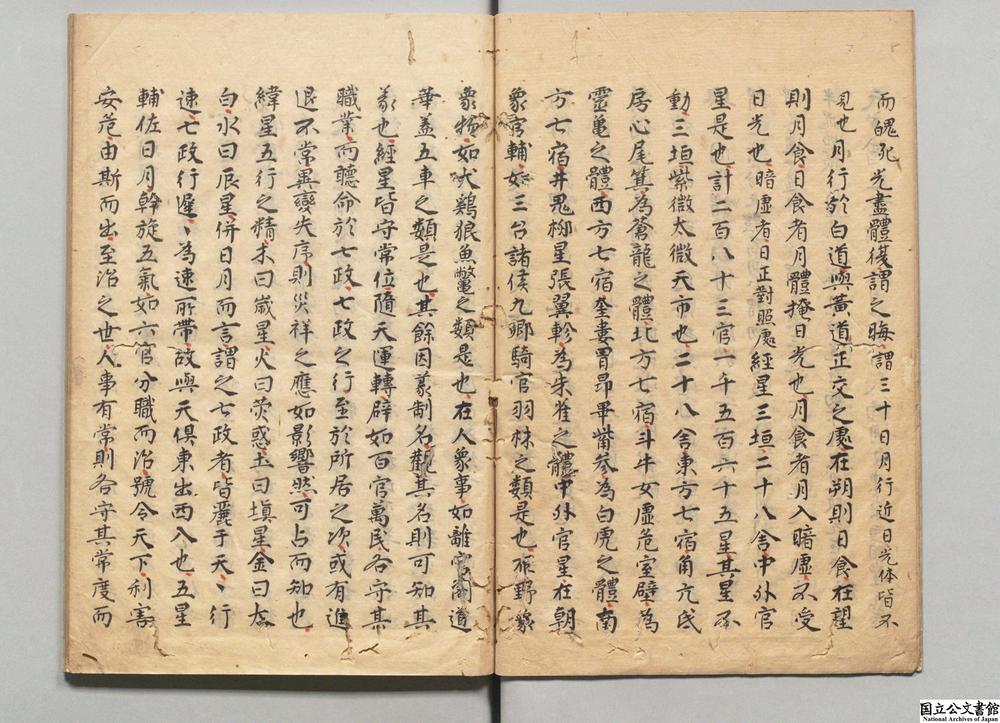 而魄死光盡體復謂之晦謂三十日月行近日光体皆不
見也月行於白道與黃道正交之處在朔則日食在望
則月食日食者月體掩日光也月食者月入暗虛不受
日光也暗虛者日正對照處經星三垣二十八舍中外官
星是也計二百八十三官一千五百六十五星其星不
動三垣紫微太微天市也二十八舍東方七宿角亢氐
房心尾箕為蒼龍之體北方七宿斗牛女虛危室壁為
靈龜之體西方七宿奎婁胃昴畢觜參為白虎之體南
方七宿井鬼柳星張翼軫為朱雀之體中外官星在朝
象官輔如三台諸侯九卿騎官羽林之類是也在野象
象物如犬鷄狼魚鱉之類是也在人象事如離宮閣道
華蓋五車之類是也其餘因義制名觀其名則可知其
義也經星皆守常位隨天運轉辟如百官萬民各守其
職業而聽命於七政七政之行至於所居之次或有進
退不常異變失序則災祥之應如影響然可占而知也
緯星五行之精木曰歲星火曰熒惑土曰塡星金曰太
白水曰辰星併日月而言謂之七政者皆麗于天丶行
速七政行遲丶為速所帶故與天俱東出西入也五星
輔佐日月斡旋五氣如六官分職而治號令天下利害
安危由斯而出至治之世人事有常則各守其常度而
国立公文書館
National Archives of Japan